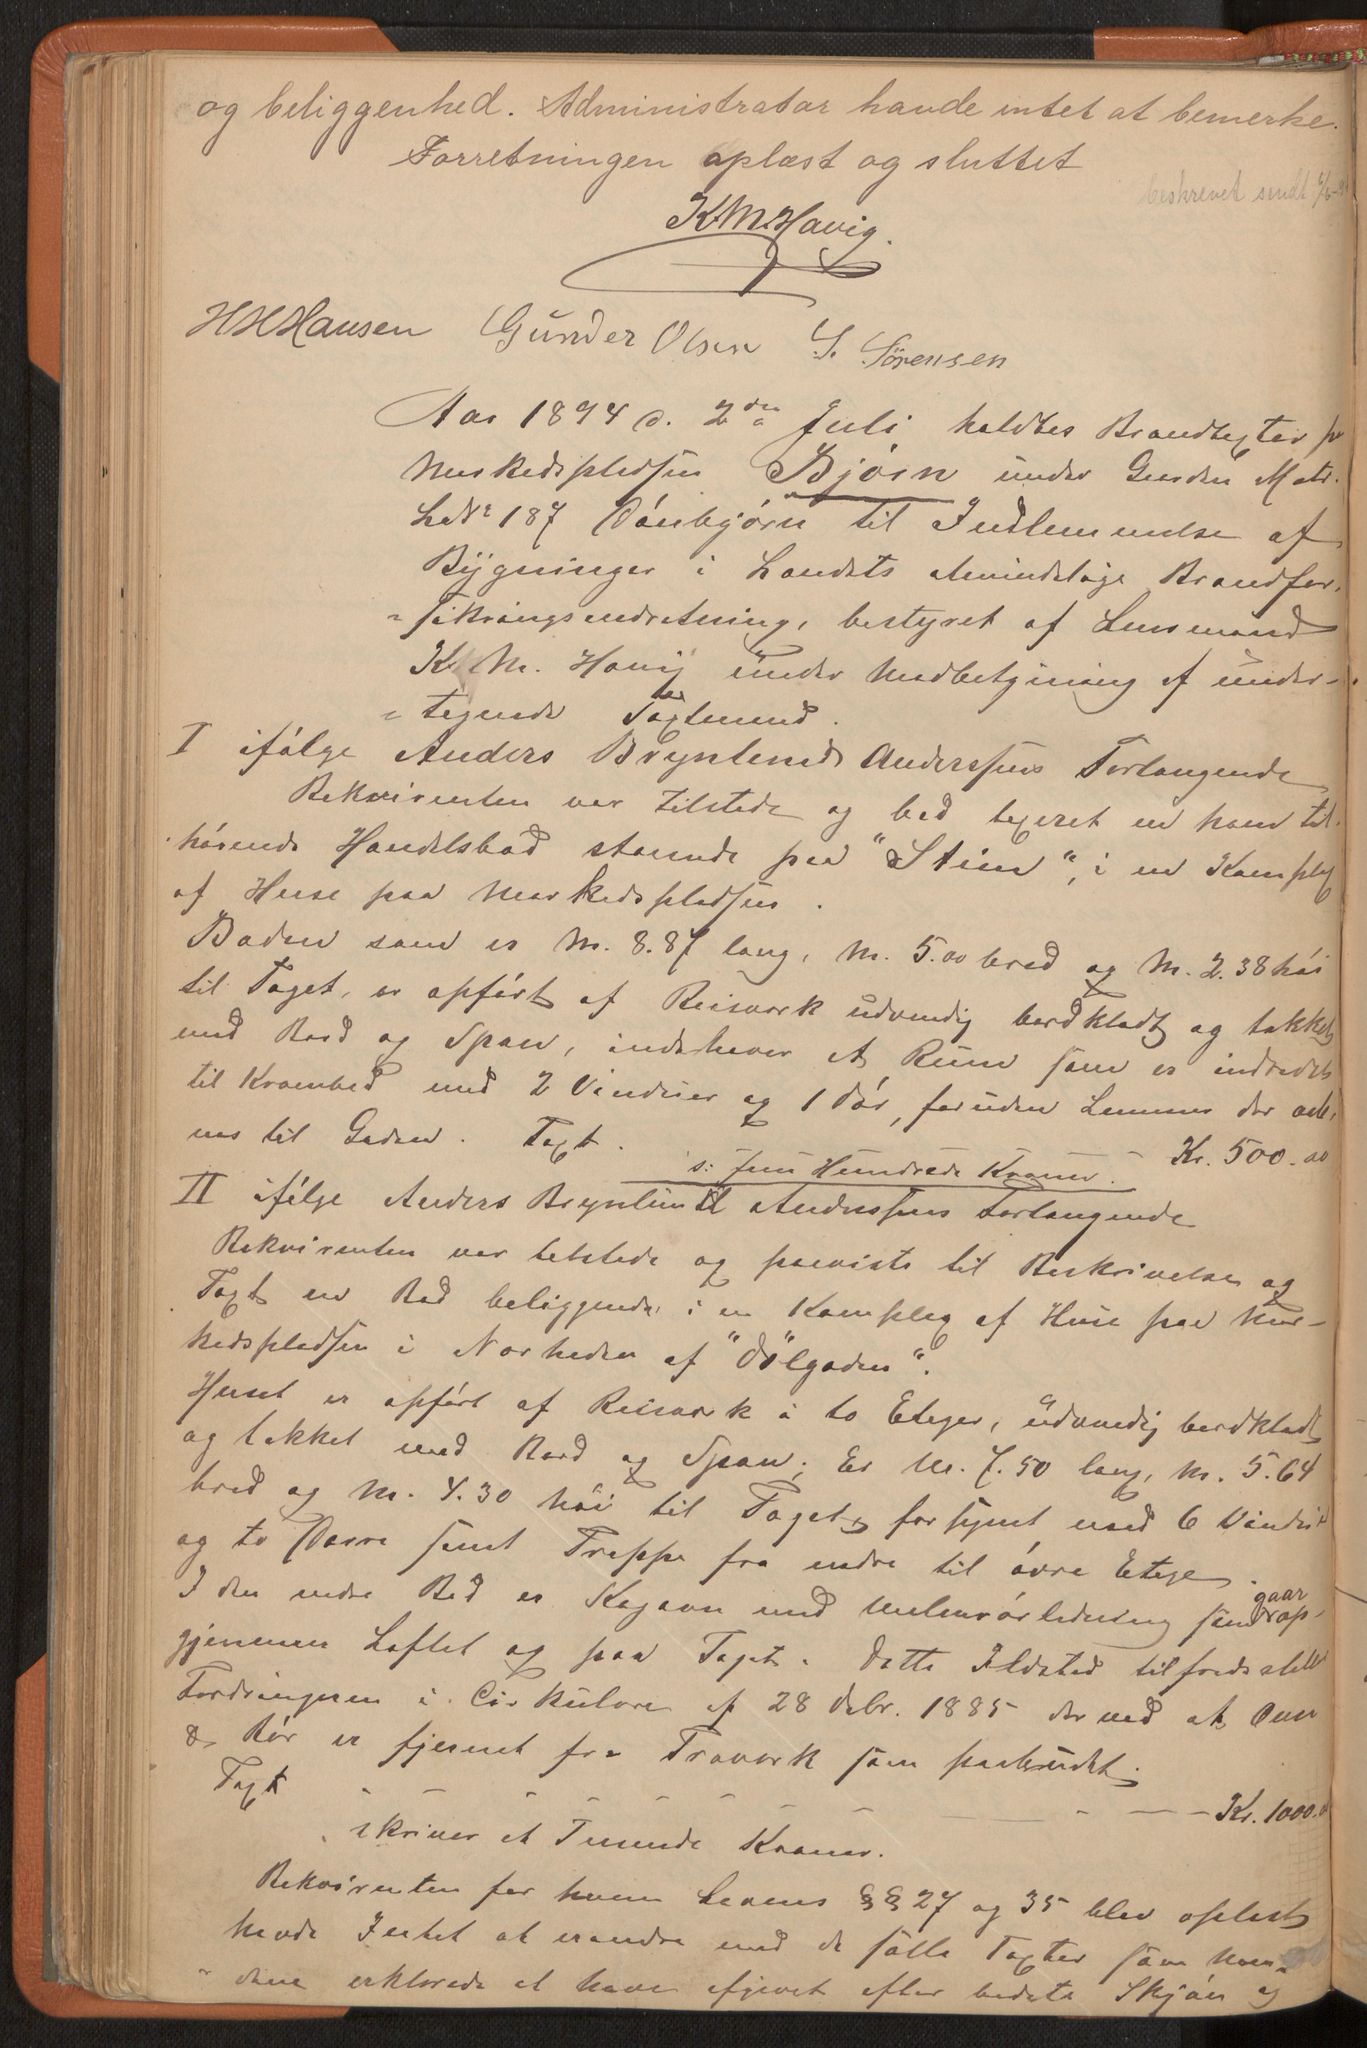 og beliggenhed. Administrator havde intet at bemerke.
Forretningen oplæst og sluttet
beskrevet sendt
K M Havig.
H H Hansen Gunder Olsen S. Sørensen
Aar 1894 d. 2den Juli holdtes Brandtaxter paa
Markedspladsen Bjørn under Gaarden Matr.
LNo 187 Dønbjørn til Indlemmelse af
Bygninger i Landets almindelige Brandfor-
sikringsindretning, bestyret af Lensmand
K. M. Havig under Medbetjening af under-
tegnede Taxtmænd.
I ifølge Anders Brynlund Anderssens Forlangende
Rekvirenten var tilstede og bad taxeret en ham til-
hørende Handelsbod staaende paa "Steien", i en Komplex
af Huse paa Markedspladsen.
Boden som er M. 8.87 lang, M. 5.00 bred og M. 2.38 høi
til Taget, er opført af Reisverk udvendig bordklædt og tækket
med Bord og Spaan, indehaver et Rum som er indredet
til Krambod med 2 Vinduer og 1 Dør, foruden Lemmer der aab-
nes til Gaden. Taxt. Kr. 500.00
s: Fem Hundrede Kroner.
II ifølge Anders Brynlund Anderssens Forlangende
Rekvirenten var tilstede og paaviste til Beskrivelse og
Taxt en Bod beliggende i en Komplex af Huse paa Mar-
kedspladsen i Nærheden af "Dølgaden".
Huset er opført af Reisverk i to Etager, udvendig bordklædt
og tækket med Bord og Spaan; Er M. 7.50 lang, M. 5.64
bred og M. 4.30 høi til Taget, forsynet med 6 Vinduer
og to Dørre samt Trappe fra nedre til øvre Etage.
I den nedre Bod er Kogeovn med Malmrørledning som gaar op-
gjennem Loftet og paa Taget. Dette Ildsted tilfredsstiller
Fordringerne i Cirkulære af 28 Debr. 1885 derved at Ovn
& Rør er fjernet fra Træverk som paabudet.
Taxt - - - - - - Kr. 1000.00
skriver et Tusende Kroner.
Rekvirenten for hvem Lovens §§ 27 og 35 blev oplæst
havde Intet at erindre mod de satte Taxter som Mæn-
dene erklærede at have afgivet efter bedste Skjøn og